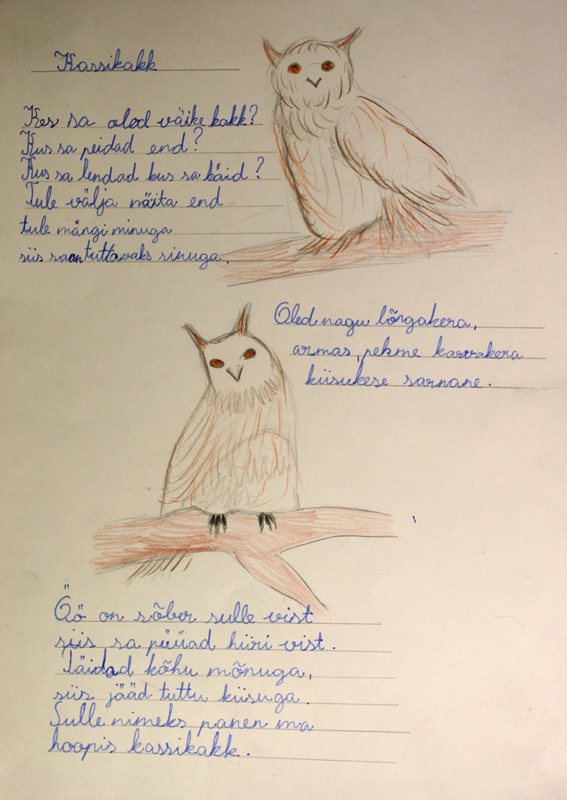 Kassikakk
Kes sa oled väike kakk?
Kus sa peidad end?
Kus sa lendad kus sa käid?
Tule välja näita end
tule mängi minuga
siis saan tuttavaks sinuga.
Oled nagu lõngakera,
armas, pehme karvakera
kiisukese sarnane.
Öö on sõber sulle vist
siis sa püüad hiiri vist.
Täidad kõhu mõnuga,
siis jääd tuttu kiisuga.
Sulle nimeks panen ma
hoopis kassikakk.